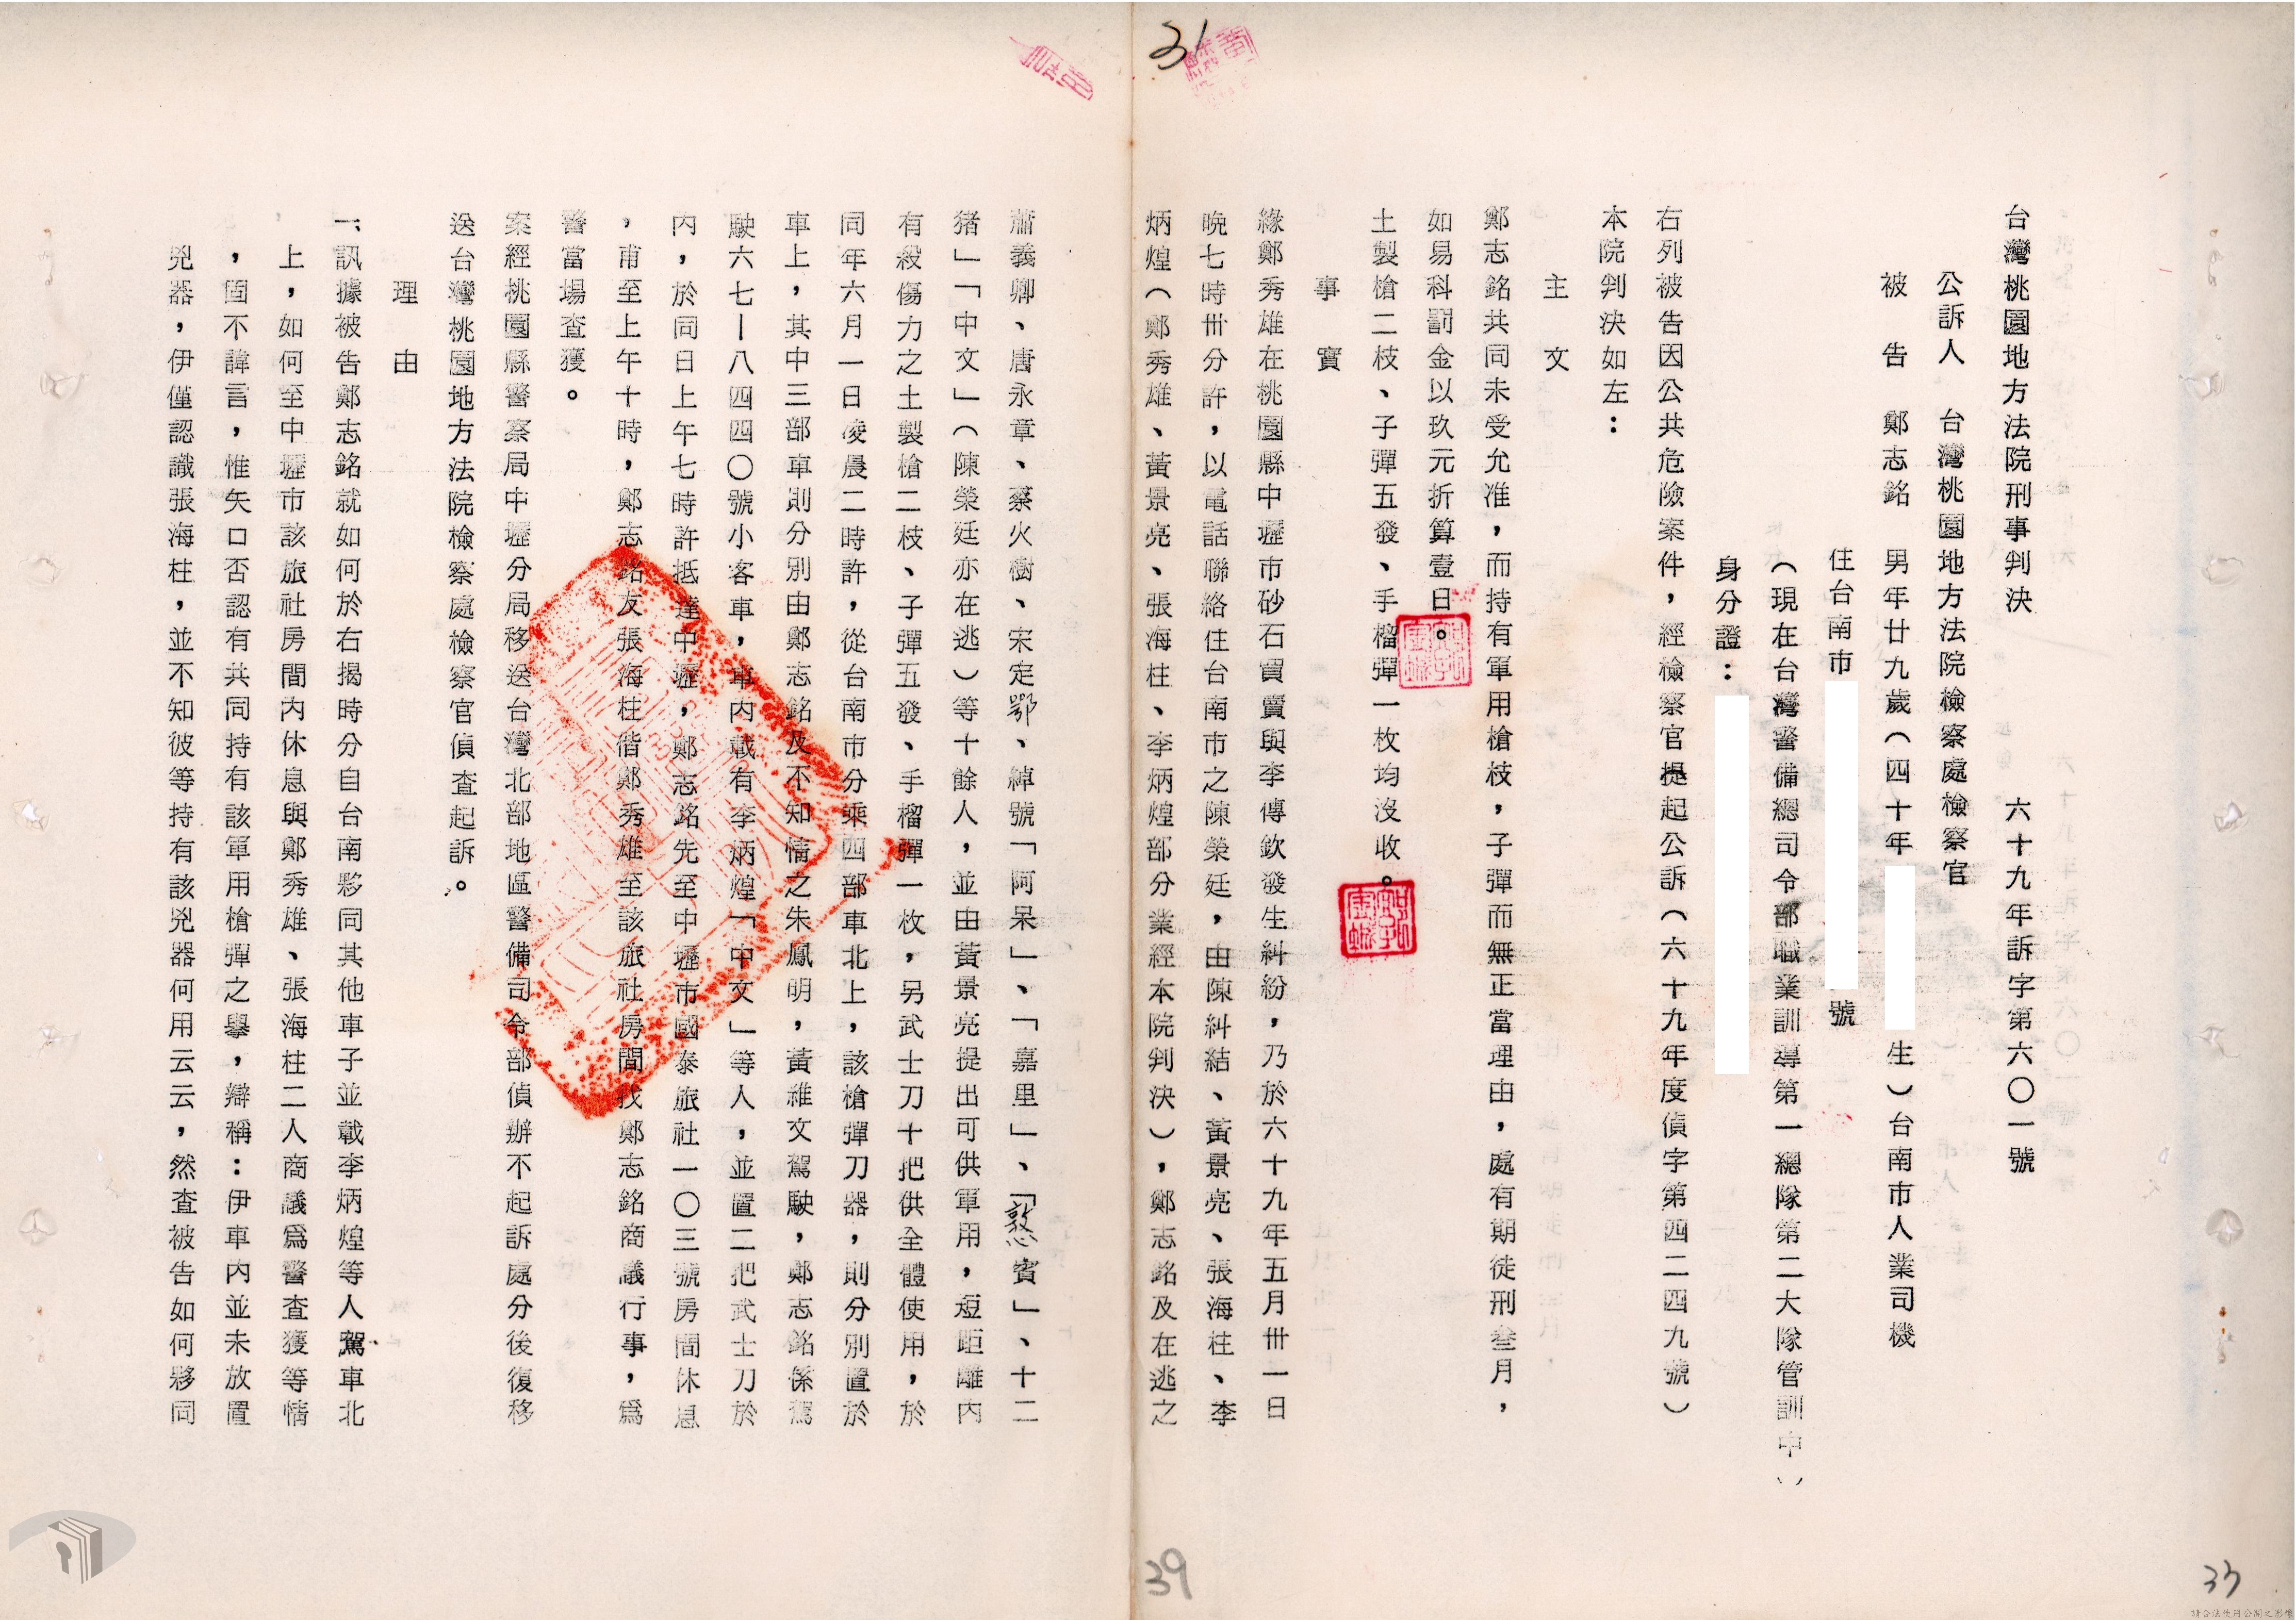 31
台灣桃園地方法院刑事判決 六十九年訴字第六〇一號
公訴人 台灣桃園地方法院檢察處檢察官
被告 鄭志銘 男年廿九歲（四十年 生）台南市人業司機
住台南市 號
（現在台灣警備總司令部職業訓導第一總隊第二大隊管訓中）
身分證：
右列被告因公共危險案件，經檢察官提起公訴（六十九年度偵字第四二四九號）
本院判決如左：
主文
鄭志銘共同未受允准，而持有軍用槍枝，子彈而無正當理由，處有期徒刑叁月，
如易科罰金以玖元折算壹日。
土製槍二枝、子彈五發、手榴彈一枚均沒收。
事實
緣鄭秀雄在桃園縣中壢市砂石買賣與李傳欽發生糾紛，乃於六十九年五月卅一日
晚七時卅分許，以電話聯絡住台南市之陳榮廷，由陳糾結、黃景亮、張海柱、李
炳煌（鄭秀雄、黃景亮、張海柱、李炳煌部分業經本院判決），鄭志銘及在逃之
蕭義卿、唐永章、蔡火樹、宋定鄂、綽號「阿呆」、「嘉里」、「憨賓」、十二
猪」「中文」（陳榮廷亦在逃）等十餘人，並由黃景亮提出可供軍用，短距離內
有殺傷力之土製槍二枝、子彈五發、手榴彈一枚，另武士刀十把供全體使用，於
同年六月一日凌晨二時許，從台南市分乘四部車北上，該槍彈刀器，則分別置於
車上，其中三部車則分別由鄭志銘及不知情之朱鳳明，黃維文駕駛，鄭志銘係駕
駛六七－八四四〇號小客車，車內載有李炳煌「中文」等人，並置二把武士刀於
內，於同日上午七時許抵達中壢，鄭志銘先至中壢市國泰旅社一〇三號房間休息
，甫至上午十時，鄭志銘友張海柱偕鄭秀雄至該旅社房間找鄭志銘商議行事，為
警當場查獲。
案經桃園縣警察局中壢分局移送台灣北部地區警備司令部偵辦不起訴處分後復移
送台灣桃園地方法院檢察處檢察官偵查起訴。
理由
一、訊據被告鄭志銘就如何於右揭時分自台南夥同其他車子並載李炳煌等人駕車北
上，如何至中壢市該旅社房間內休息與鄭秀雄、張海柱二人商議為警查獲等情
，固不諱言，惟矢口否認有共同持有該軍用槍彈之舉，辯稱：伊車內並未放置
兇器，伊僅認識張海柱，並不知彼等持有該兇器何用云云，然查被告如何夥同
39
33
請合法使用公開之影像